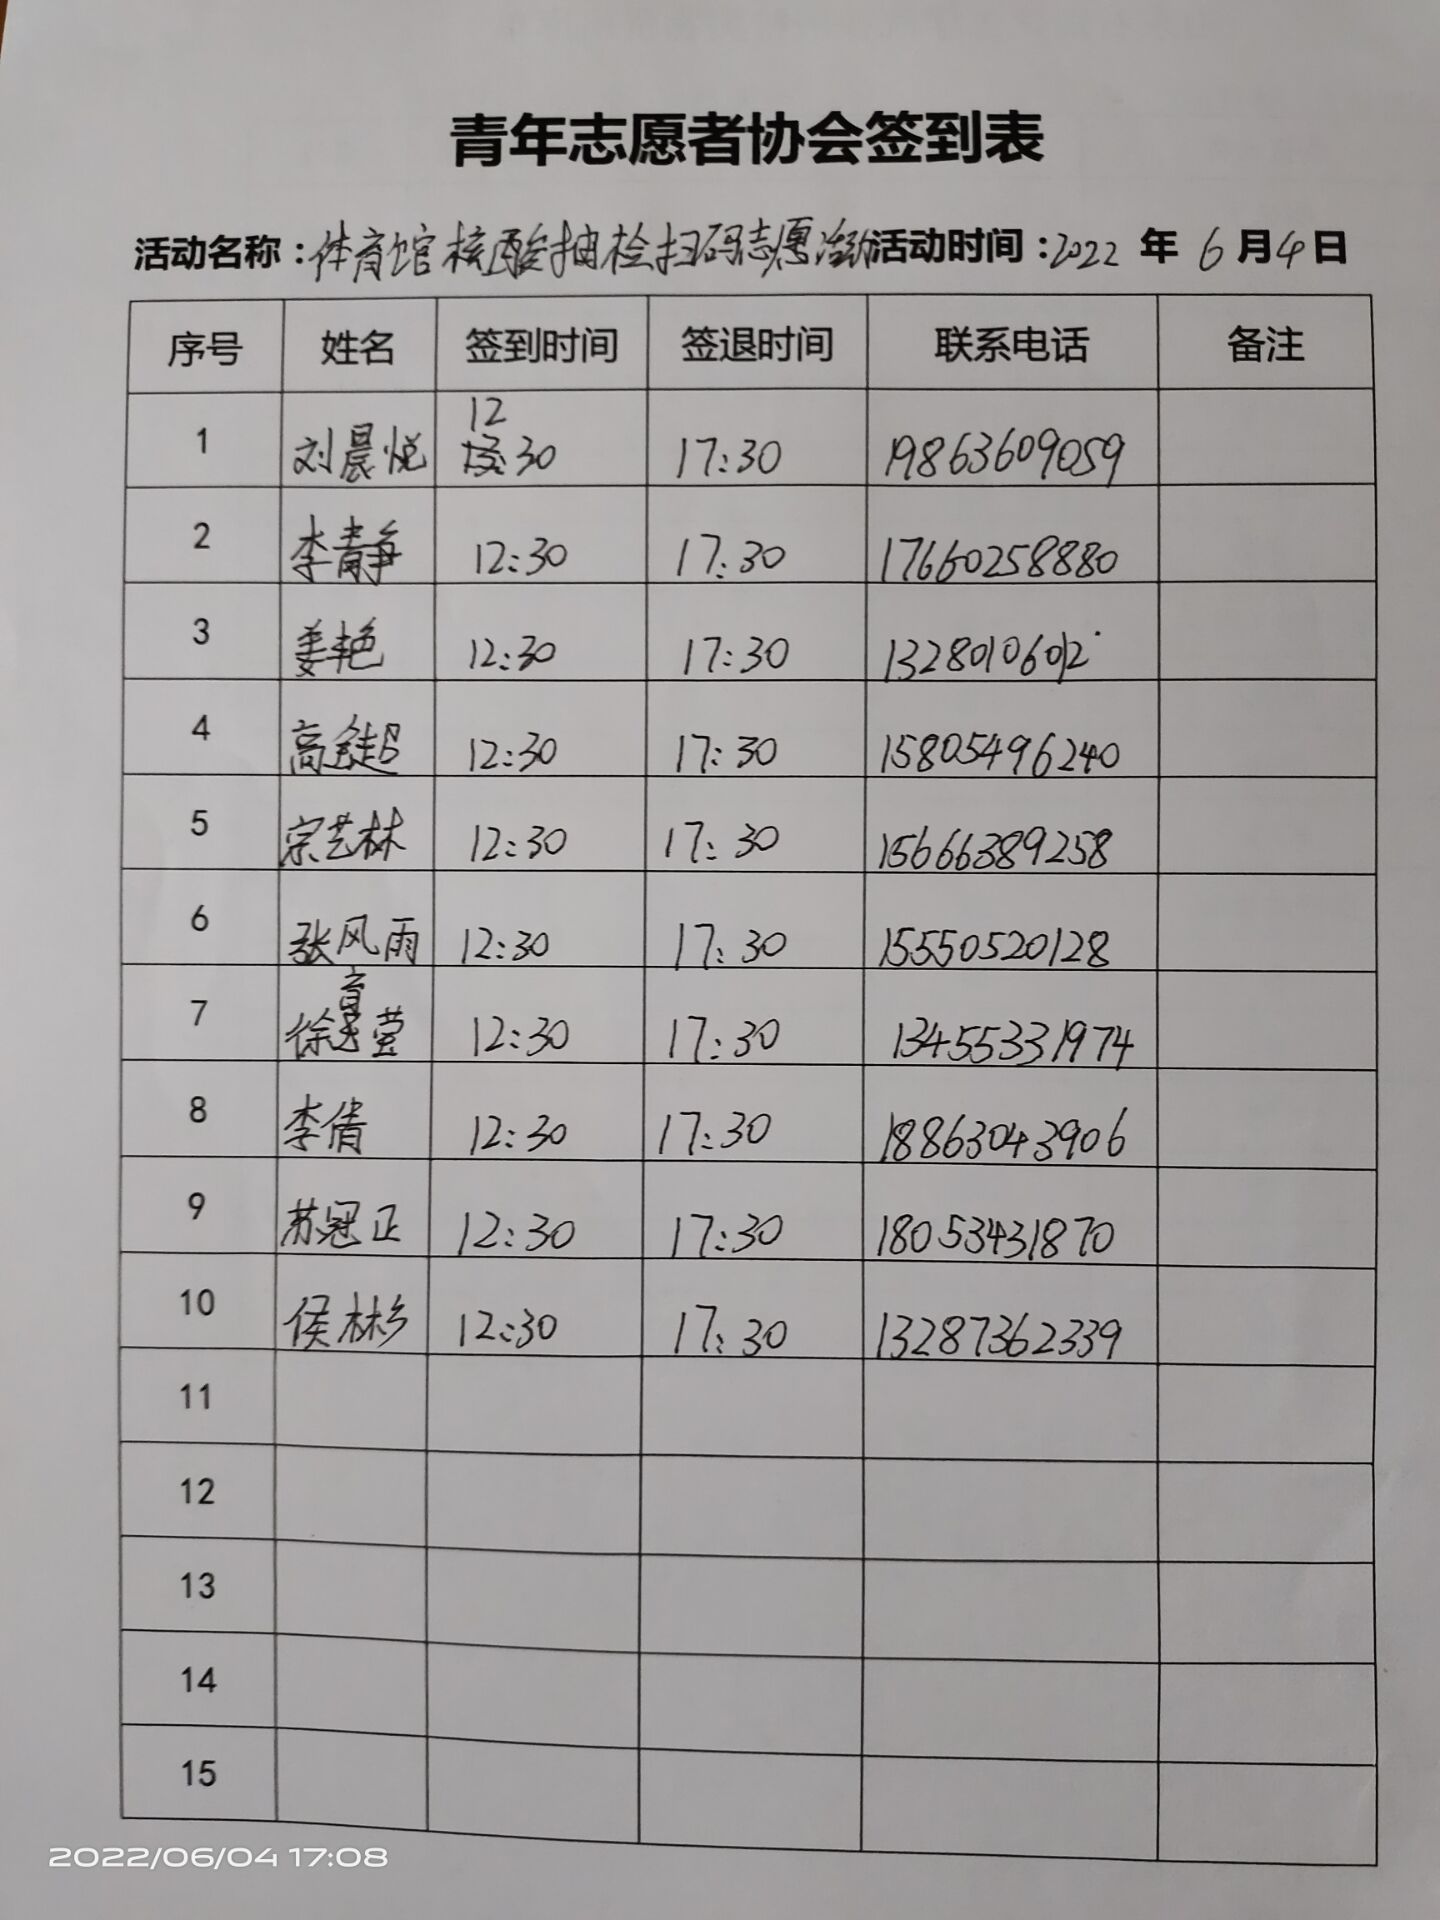 青年志愿者协会签到表
活动名称：体育馆核酸抽检扫码志愿活动 活动时间：2022 年 6 月 4 日
序号 姓名 签到时间 签退时间 联系电话 备注
12
1 刘晨悦 :30 17:30 19863609059
2 李静 12:30 17:30 17660258880
3 姜艳 12:30 17:30 13280106012
4 高超 12:30 17:30 15805496240
5 宗艺林 12:30 17:30 15666389258
6 张风雨 12:30 17:30 15550520128
育
7 徐莹 12:30 17:30 13455331974
8 李倩 12:30 17:30 18863043906
9 苏冠正 12:30 17:30 18053431870
10 侯彬 12:30 17:30 13287362339
11
12
13
14
15
2022/06/04 17:08